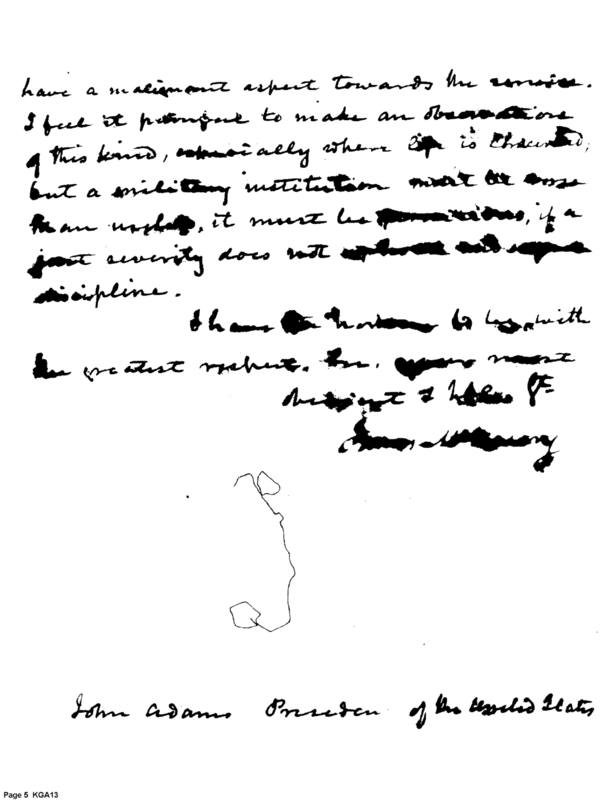 have a malignant aspect towards the service.
I feel it painful to make an observation
of this kind, especially where life is concerned;
but a military institution must be worse
than useless, it must be pernicious, if a
just severity does not and
discipline.
I have the honour to be, with
the greatest respect, Sir, your most
obedient & St
James McHenry
John Adams Presiden of the United States
Page 5 KGA13